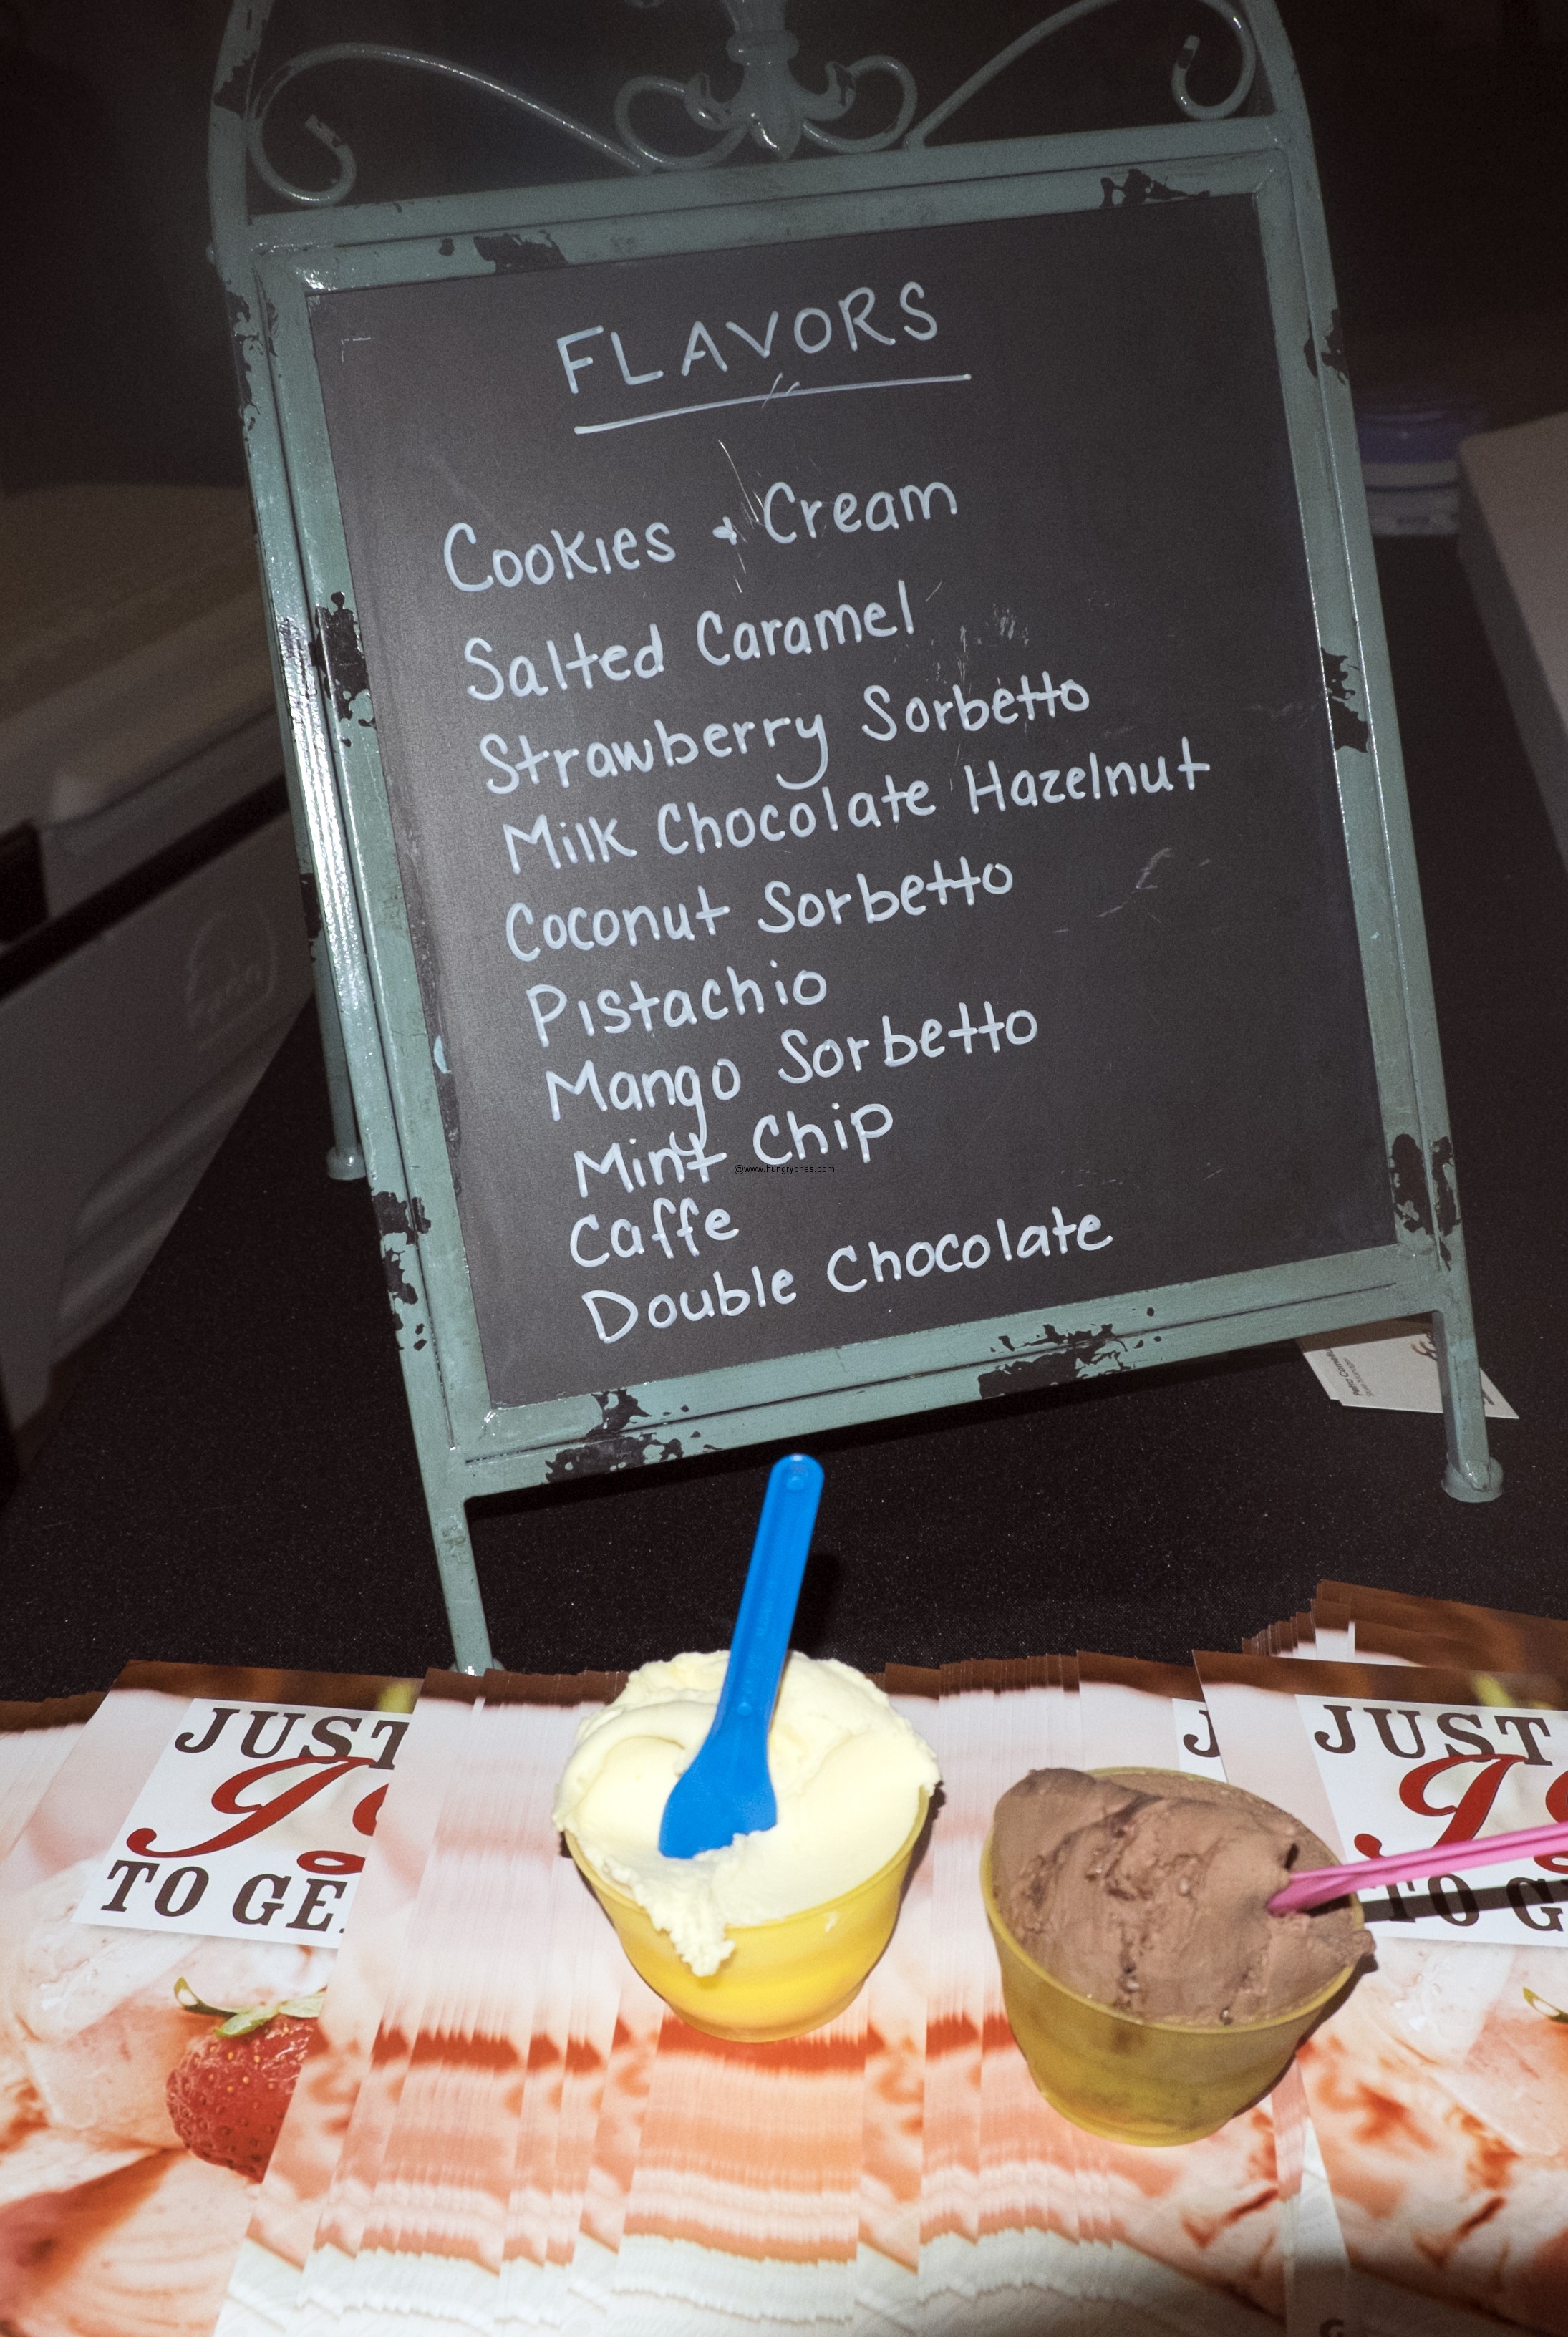 FLAVORS
Cookies & Cream
Salted Caramel
Strawberry Sorbetto
Milk Chocolate Hazelnut
Coconut Sorbetto
Pistachio
Mango Sorbetto
Mint Chip
@www.hungryones.com
Caffe
Double Chocolate
JUST
TO GE
JUST
TO G